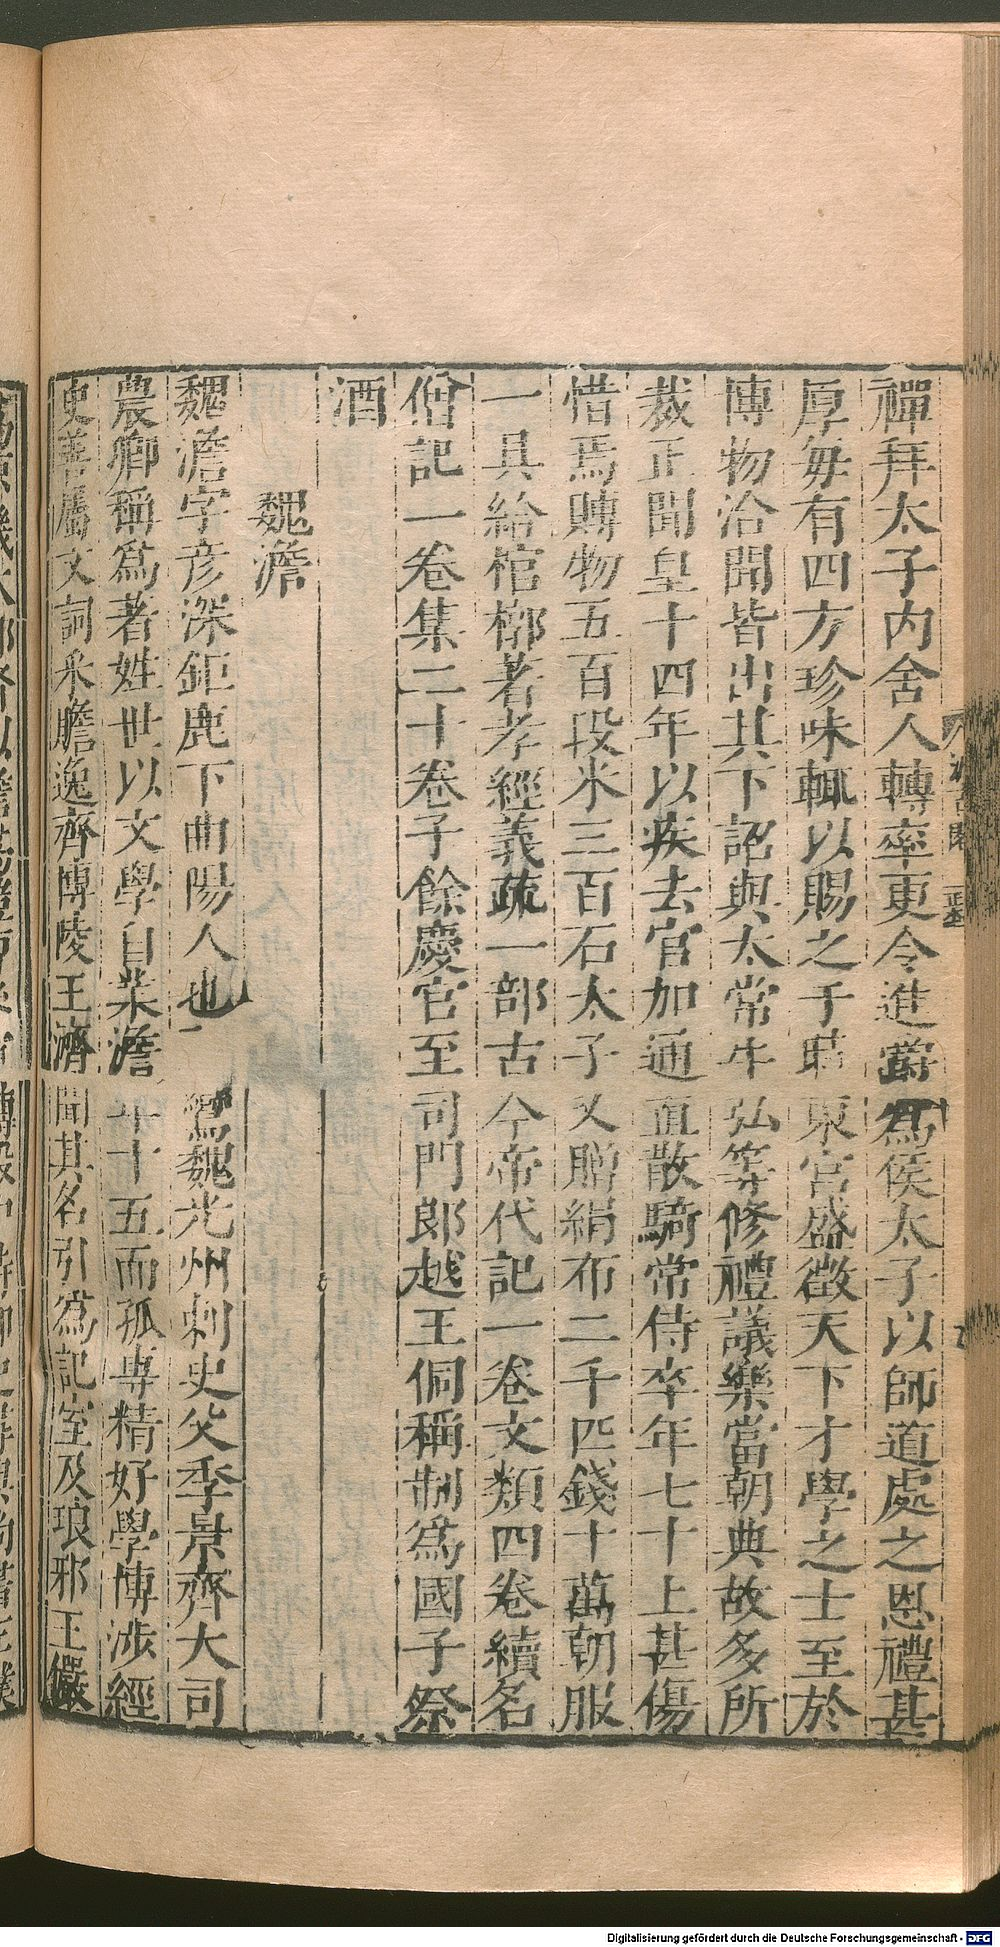 禪拜太子内舍人轉率更令進爵爲侯太子以師道處之恩禮甚
厚毎有四方珍味輒以賜之于時東宮盛徵天下才學之士至於
博物洽聞皆出其下詔與太常牛弘等修禮議樂當朝典故多所
裁正開皇十四年以疾去官加通直散騎常侍卒年七十上甚傷
惜焉賻物五百段米三百石太子又贈絹布二千匹錢十萬朝服
一具給棺槨著孝經義疏一部古今帝代記一卷文類四卷續名
僧記一卷集二十卷子餘慶官至司門郎越王侗稱制爲國子祭
酒
魏澹
魏澹字彦深鉅鹿下曲陽人也 鸞魏光州刺史父季景齊大司
農卿稱爲著姓世以文學自業澹年十五而孤專精好學博渉經
史善屬文詞采贍逸齊博陵王濟聞其名引爲記室及琅邪王儼
Digitalisierung gefördert durch die Deutsche Forschungsgemeinschaft - DFG